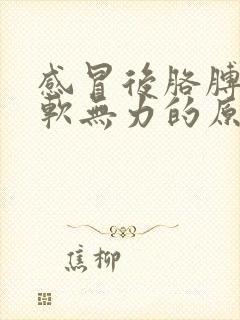 感冒後胳膊
軟無力的原
焦柳